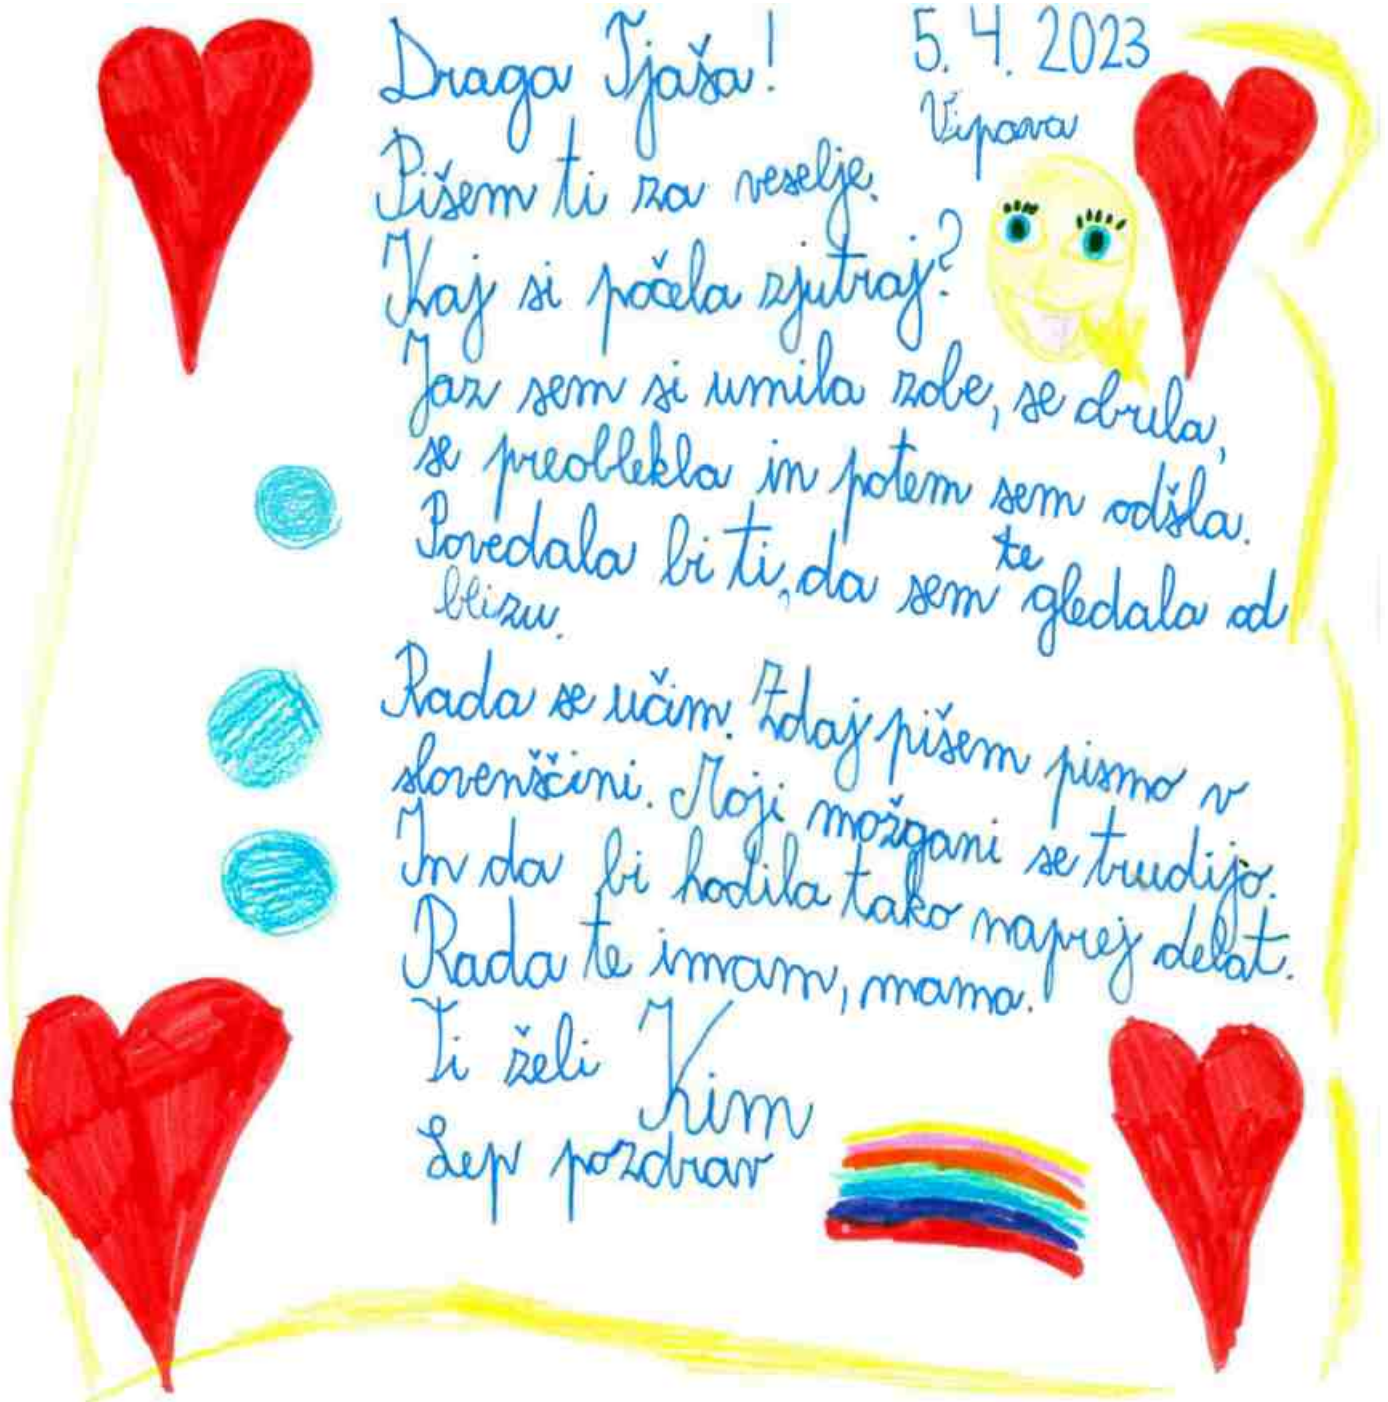 Draga Tjaša!
5. 4. 2023
Vipava
Pišem ti za veselje.
Kaj si počela zjutraj?
Jaz sem si umila zobe, se
se preoblekla in potem sem odšla.
Povedala bi ti, da sem te gledala od
blizu.
Rada se učim. Zdaj pišem pismo v
slovenščini. Moji možgani se trudijo.
In da bi hodila tako naprej delat.
Rada te imam, mama.
Ti želi Kim
Lep pozdrav